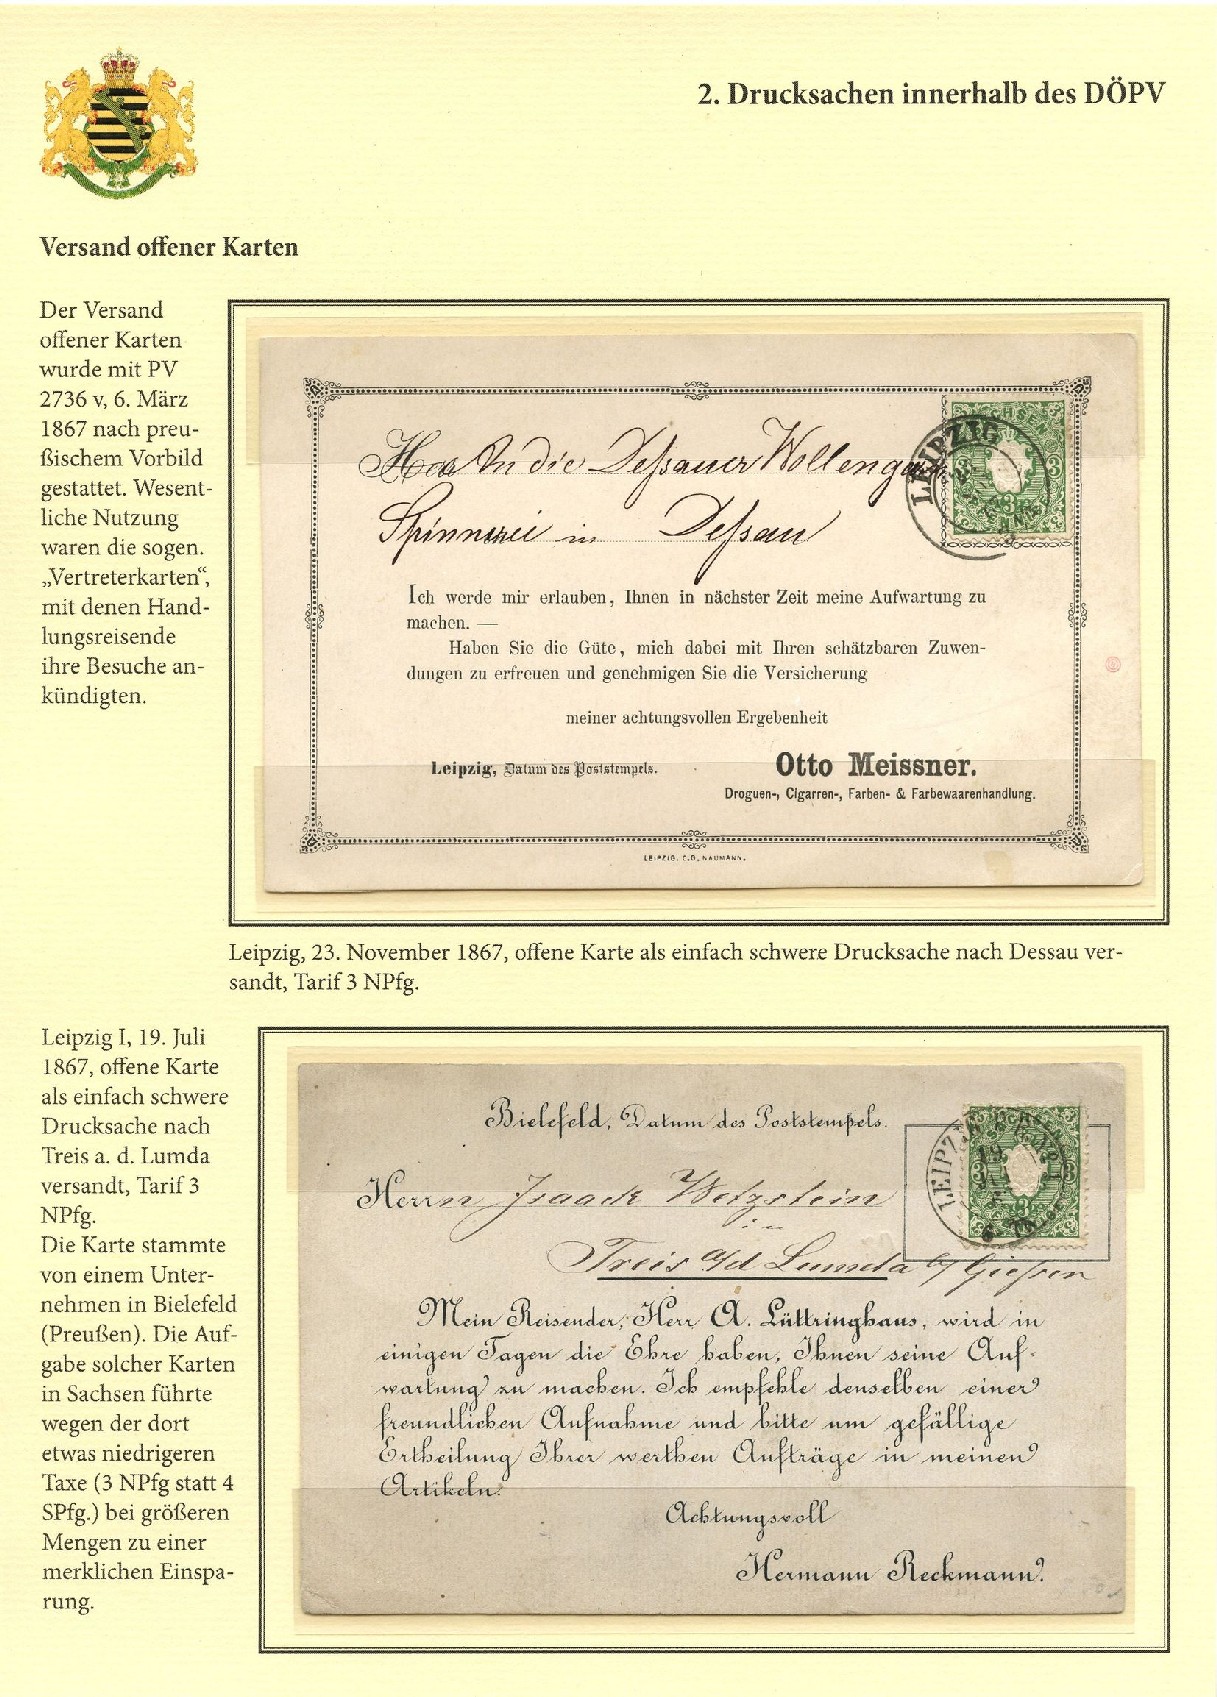 2. Drucksachen innerhalb des DÖPV
Versand offener Karten
Der Versand
offener Karten
wurde mit PV
2736 v, 6. März
1867 nach preu-
ßischem Vorbild
gestattet. Wesent-
liche Nutzung
waren die sogen.
„Vertreterkarten“,
mit denen Hand-
lungsreisende
ihre Besuche an-
kündigten.
An die Dessauer Wollengarn
Spinnerei in Dessau
LEIPZIG
3 3
Ich werde mir erlauben, Ihnen in nächster Zeit meine Aufwartung zu
machen. —
Haben Sie die Güte, mich dabei mit Ihren schätzbaren Zuwen-
dungen zu erfreuen und genehmigen Sie die Versicherung
meiner achtungsvollen Ergebenheit
Leipzig, Datum des Poststempels.
Otto Meissner.
Droguen-, Cigarren-, Farben- & Farbewaarenhandlung.
LEIPZIG, C.G. NAUMANN.
Leipzig, 23. November 1867, offene Karte als einfach schwere Drucksache nach Dessau ver-
sandt, Tarif 3 NPfg.
Leipzig I, 19. Juli
1867, offene Karte
als einfach schwere
Drucksache nach
Treis a. d. Lumda
versandt, Tarif 3
NPfg.
Die Karte stammte
von einem Unter-
nehmen in Bielefeld
(Preußen). Die Auf-
gabe solcher Karten
in Sachsen führte
wegen der dort
etwas niedrigeren
Taxe (3 NPfg statt 4
SPfg.) bei größeren
Mengen zu einer
merklichen Einspa-
rung.
Bielefeld, Datum des Poststempels.
LEIPZIG
19
3 3
Herrn Isaack Wetzstein
in
Treis a/d Lumda b/ Giessen
Mein Reisender, Herr A. Lüttringhaus, wird in
einigen Tagen die Ehre haben, Ihnen seine Auf-
wartung zu machen. Ich empfehle denselben einer
freundlichen Aufnahme und bitte um gefällige
Ertheilung Ihrer werthen Aufträge in meinen
Artikeln.
Achtungsvoll
Hermann Reckmann.